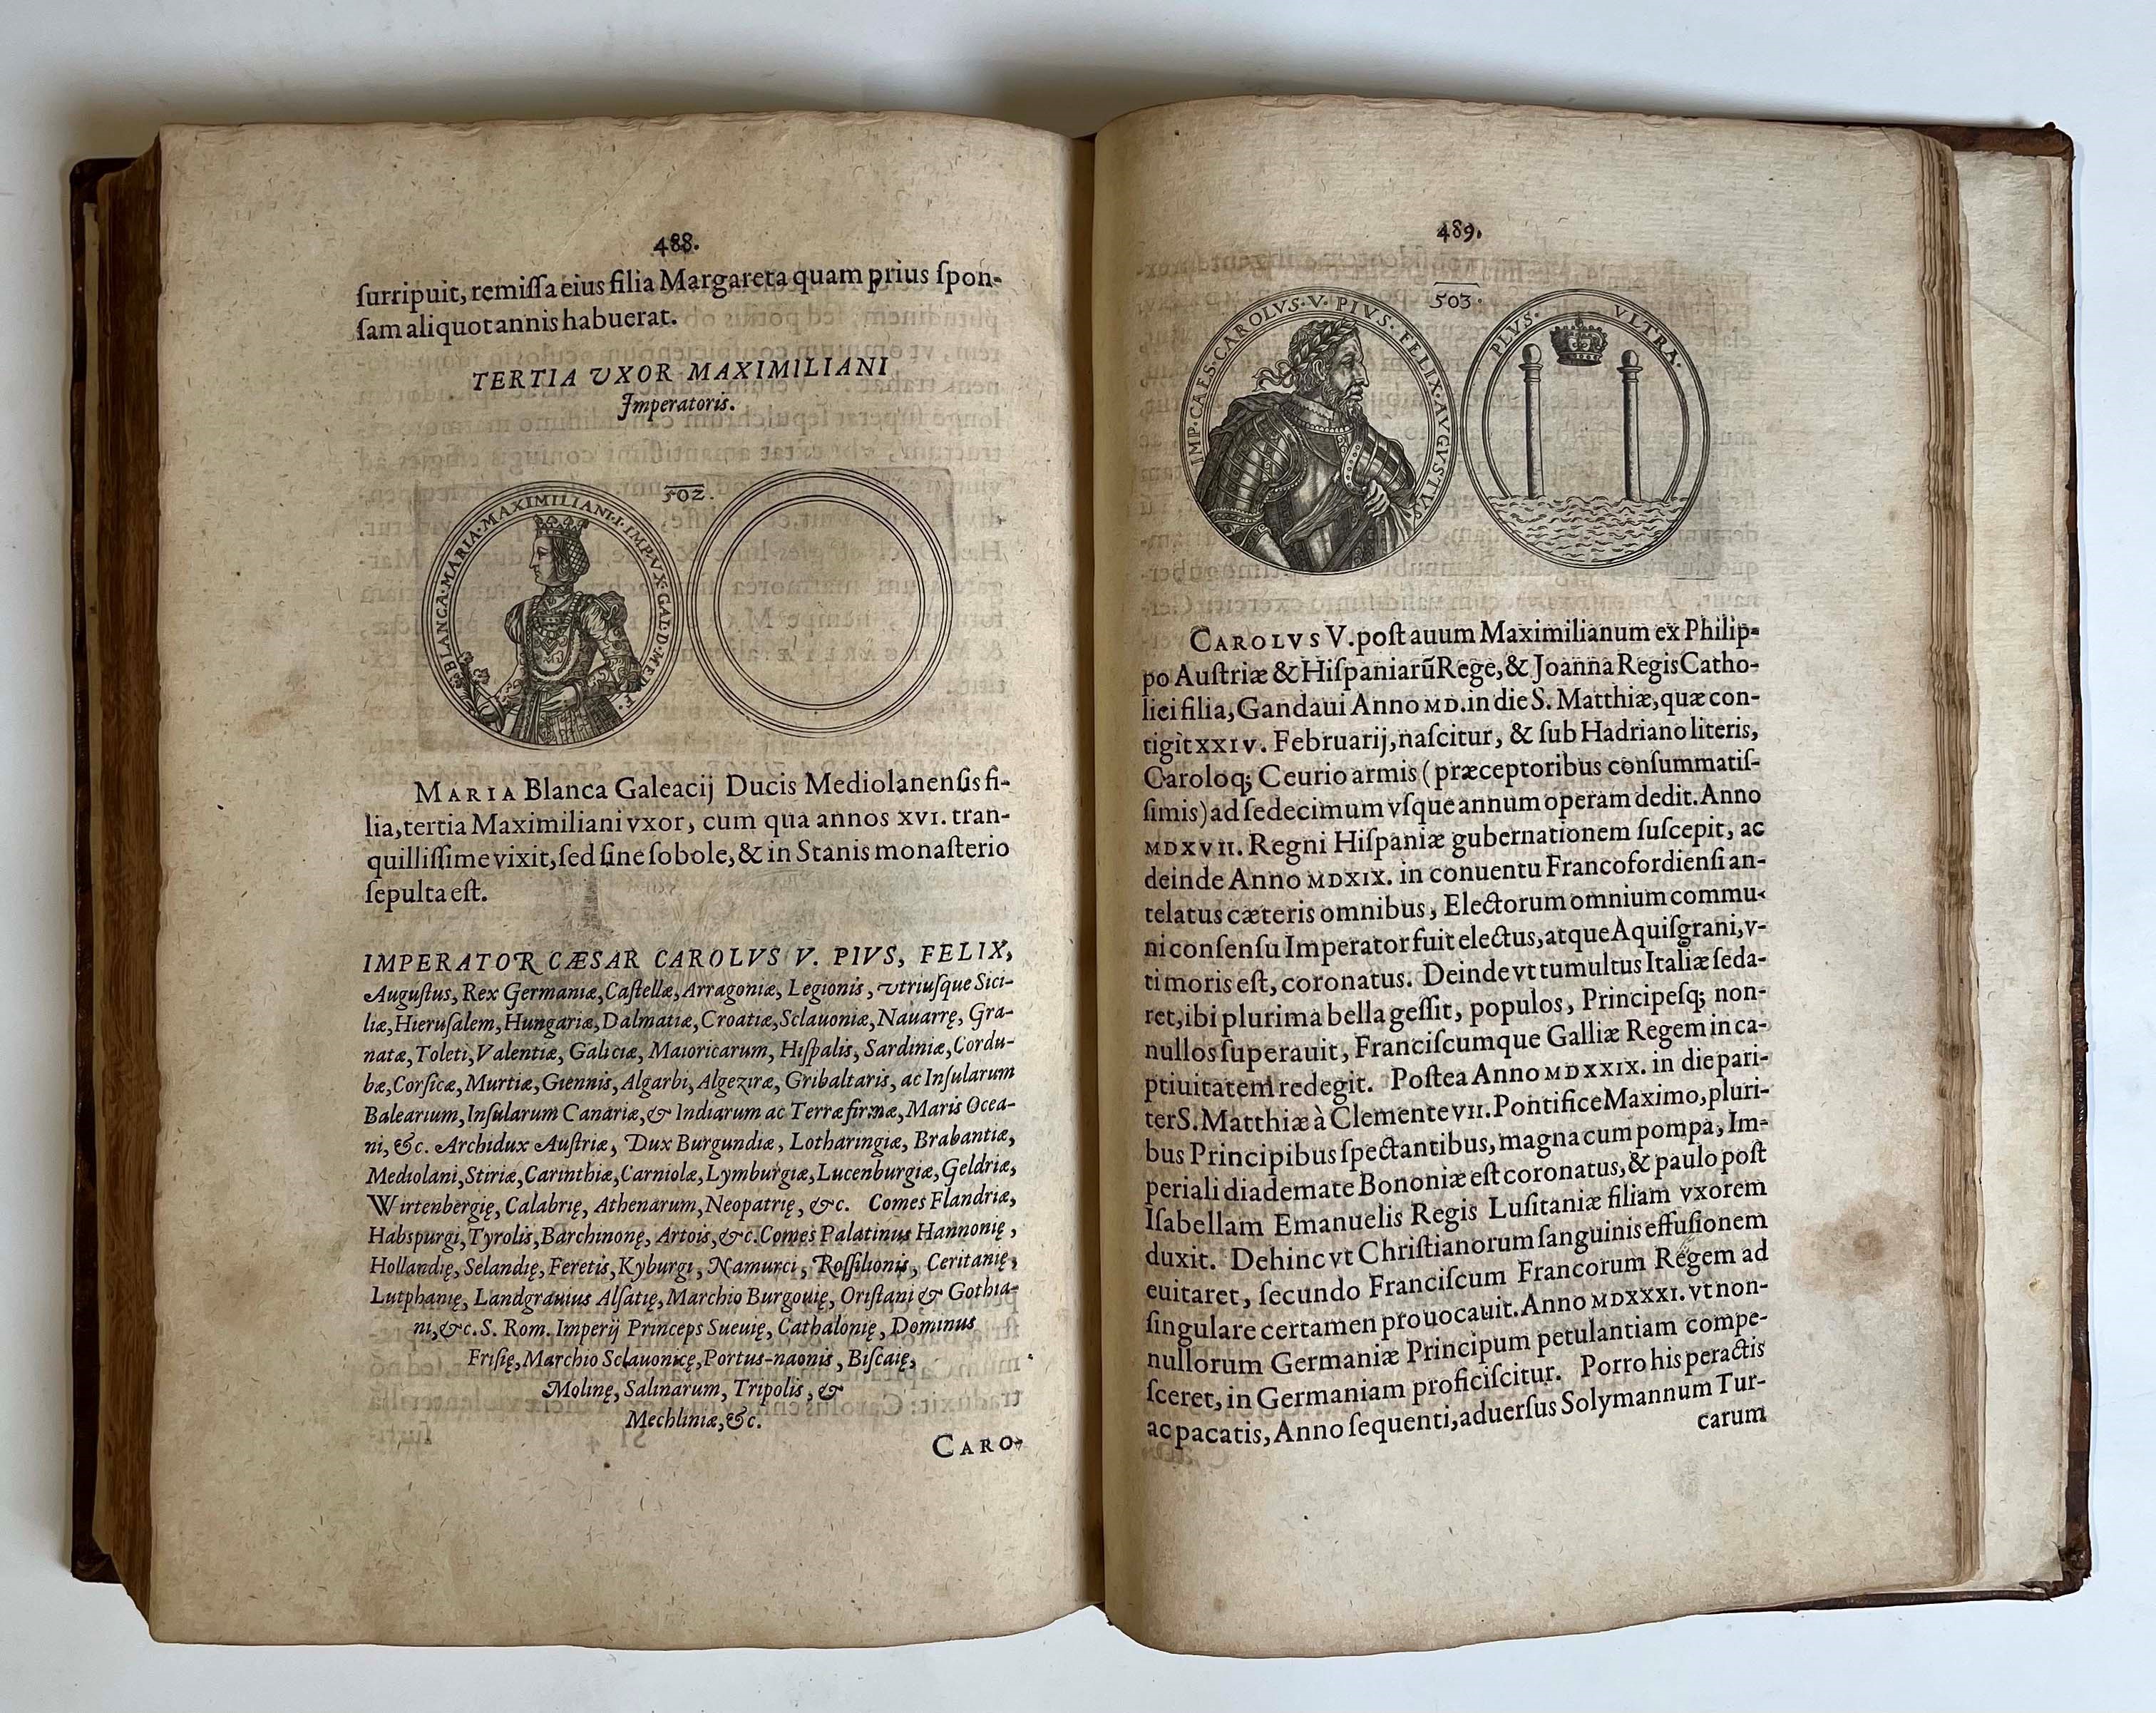 488.
ſurripuit, remiſſa eius filia Margareta quam prius ſpon-
ſam aliquot annis habuerat.
TERTIA VXOR MAXIMILIANI
Imperatoris.
502.
BLANCA·MARIA·MAXIMILIANI·I·IMP·VX·GAL·D·MED·F·
MARIA Blanca Galeacij Ducis Mediolanenſis fi-
lia, tertia Maximiliani vxor, cum qua annos XVI. tran-
quilliſſime vixit, ſed ſine ſobole, & in Stanis monaſterio
ſepulta eſt.
IMPERATOR CÆSAR CAROLVS V. PIVS, FELIX,
Auguſtus, Rex Germaniæ, Caſtellæ, Arragoniæ, Legionis, vtriuſque Sici-
liæ, Hieruſalem, Hungariæ, Dalmatiæ, Croatiæ, Sclauoniæ, Nauarrę, Gra-
natæ, Toleti, Valentiæ, Galiciæ, Maioricarum, Hiſpalis, Sardiniæ, Cordu-
bæ, Corſicæ, Murtiæ, Giennis, Algarbi, Algeziræ, Gribaltaris, ac Inſularum
Balearium, Inſularum Canariæ, & Indiarum ac Terræ firmæ, Maris Ocea-
ni, &c. Archidux Auſtriæ, Dux Burgundiæ, Lotharingiæ, Brabantiæ,
Mediolani, Stiriæ, Carinthiæ, Carniolæ, Lymburgiæ, Lucenburgiæ, Geldriæ,
Wirtenbergię, Calabrię, Athenarum, Neopatrię, &c. Comes Flandriæ,
Habspurgi, Tyrolis, Barchinonę, Artois, &c. Comes Palatinus Hannonię,
Hollandię, Selandię, Feretis, Kyburgi, Namurci, Roſſilionis, Ceritanię,
Lutphanię, Landgrauius Alſatię, Marchio Burgouię, Oriſtani & Gothia-
ni, &c. S. Rom. Imperij Princeps Sueuię, Cathalonię, Dominus
Friſię, Marchio Sclauonicę, Portus-naonis, Biſcaię,
Molinę, Salinarum, Tripolis, &
Mechliniæ, &c.
CARO-
489.
503.
IMP·CAES·CAROLVS·V·PIVS·FELIX·AVGVSTVS
PLVS· VLTRA·
CAROLVS V. poſt auum Maximilianum ex Philip-
po Auſtriæ & Hiſpaniarũ Rege, & Joanna Regis Catho-
lici filia, Gandaui Anno MD. in die S. Matthiæ, quæ con-
tigit XXIV. Februarij, naſcitur, & ſub Hadriano literis,
Caroloq; Ceurio armis (præceptoribus conſummatiſ-
ſimis) ad ſedecimum vſque annum operam dedit. Anno
MDXVII. Regni Hiſpaniæ gubernationem ſuſcepit, ac
deinde Anno MDXIX. in conuentu Francofordienſi an-
telatus cæteris omnibus, Electorum omnium commu-
ni conſenſu Imperator fuit electus, atque Aquiſgrani, v-
ti moris eſt, coronatus. Deinde vt tumultus Italiæ ſeda-
ret, ibi plurima bella geſſit, populos, Principeſq; non-
nullos ſuperauit, Franciſcumque Galliæ Regem in ca-
ptiuitatem redegit. Poſtea Anno MDXXIX. in die pari-
ter S. Matthiæ à Clemente VII. Pontifice Maximo, pluri-
bus Principibus ſpectantibus, magna cum pompa, Im-
periali diademate Bononiæ eſt coronatus, & paulo poſt
Iſabellam Emanuelis Regis Luſitaniæ filiam vxorem
duxit. Dehinc vt Chriſtianorum ſanguinis effuſionem
euitaret, ſecundo Franciſcum Francorum Regem ad
ſingulare certamen prouocauit. Anno MDXXXI. vt non-
nullorum Germaniæ Principum petulantiam compe-
ſceret, in Germaniam proficiſcitur. Porro his peractis
ac pacatis, Anno ſequenti, aduerſus Solymannum Tur-
carum